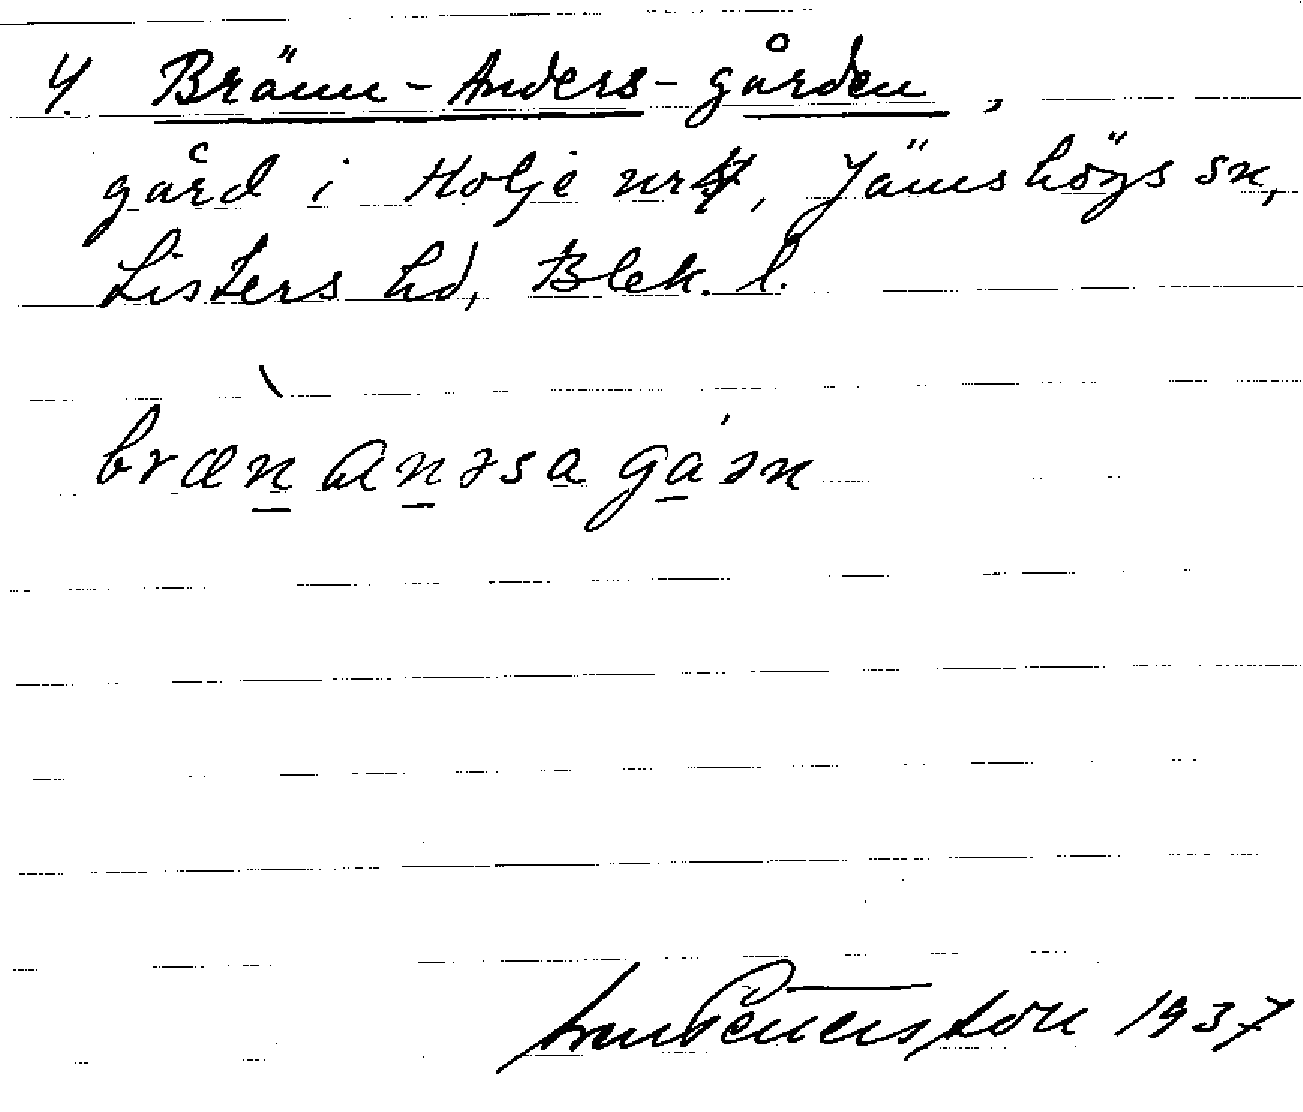 4. Bränn-Anders-gården,
gård i Holje nr 4, Jämshögs sn,
Listers hd, Blek. l.
bræ̀n anəsa gáən
Pettersson 1937